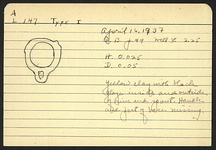 A
L 147 Type I
April 16, 1937
B J 44 Well 2.25
H. 0.025
D. 0.05
Yellow clay with black
glaze inside and outside
of rim and spout. Handle
and part of base missing.